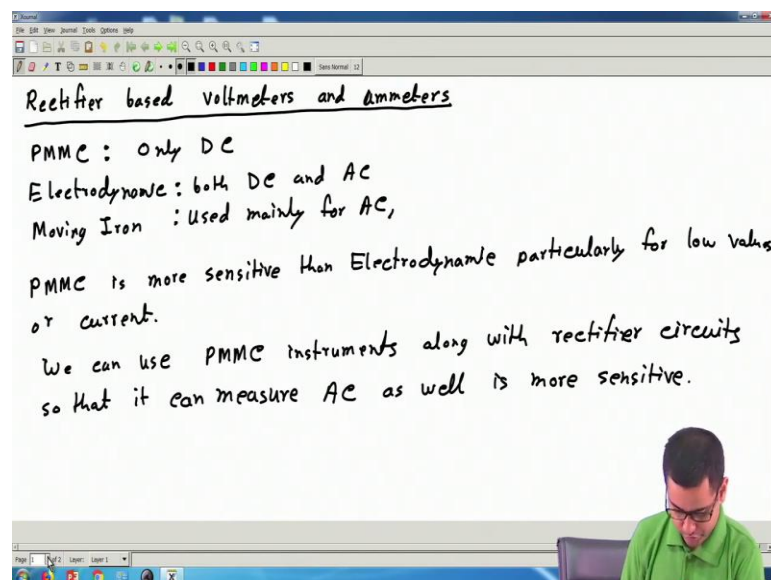 Xournal
File Edit View Journal Tools Options Help
Sans Normal 12
Rectifier based voltmeters and ammeters
PMMC : Only DC
Electrodynamic : both DC and AC
Moving Iron : Used mainly for AC,
PMMC is more sensitive than Electrodynamic particularly for low values
or current.
We can use PMMC instruments along with rectifier circuits
so that it can measure AC as well is more sensitive.
Page 1 of 2 Layer: Layer 1